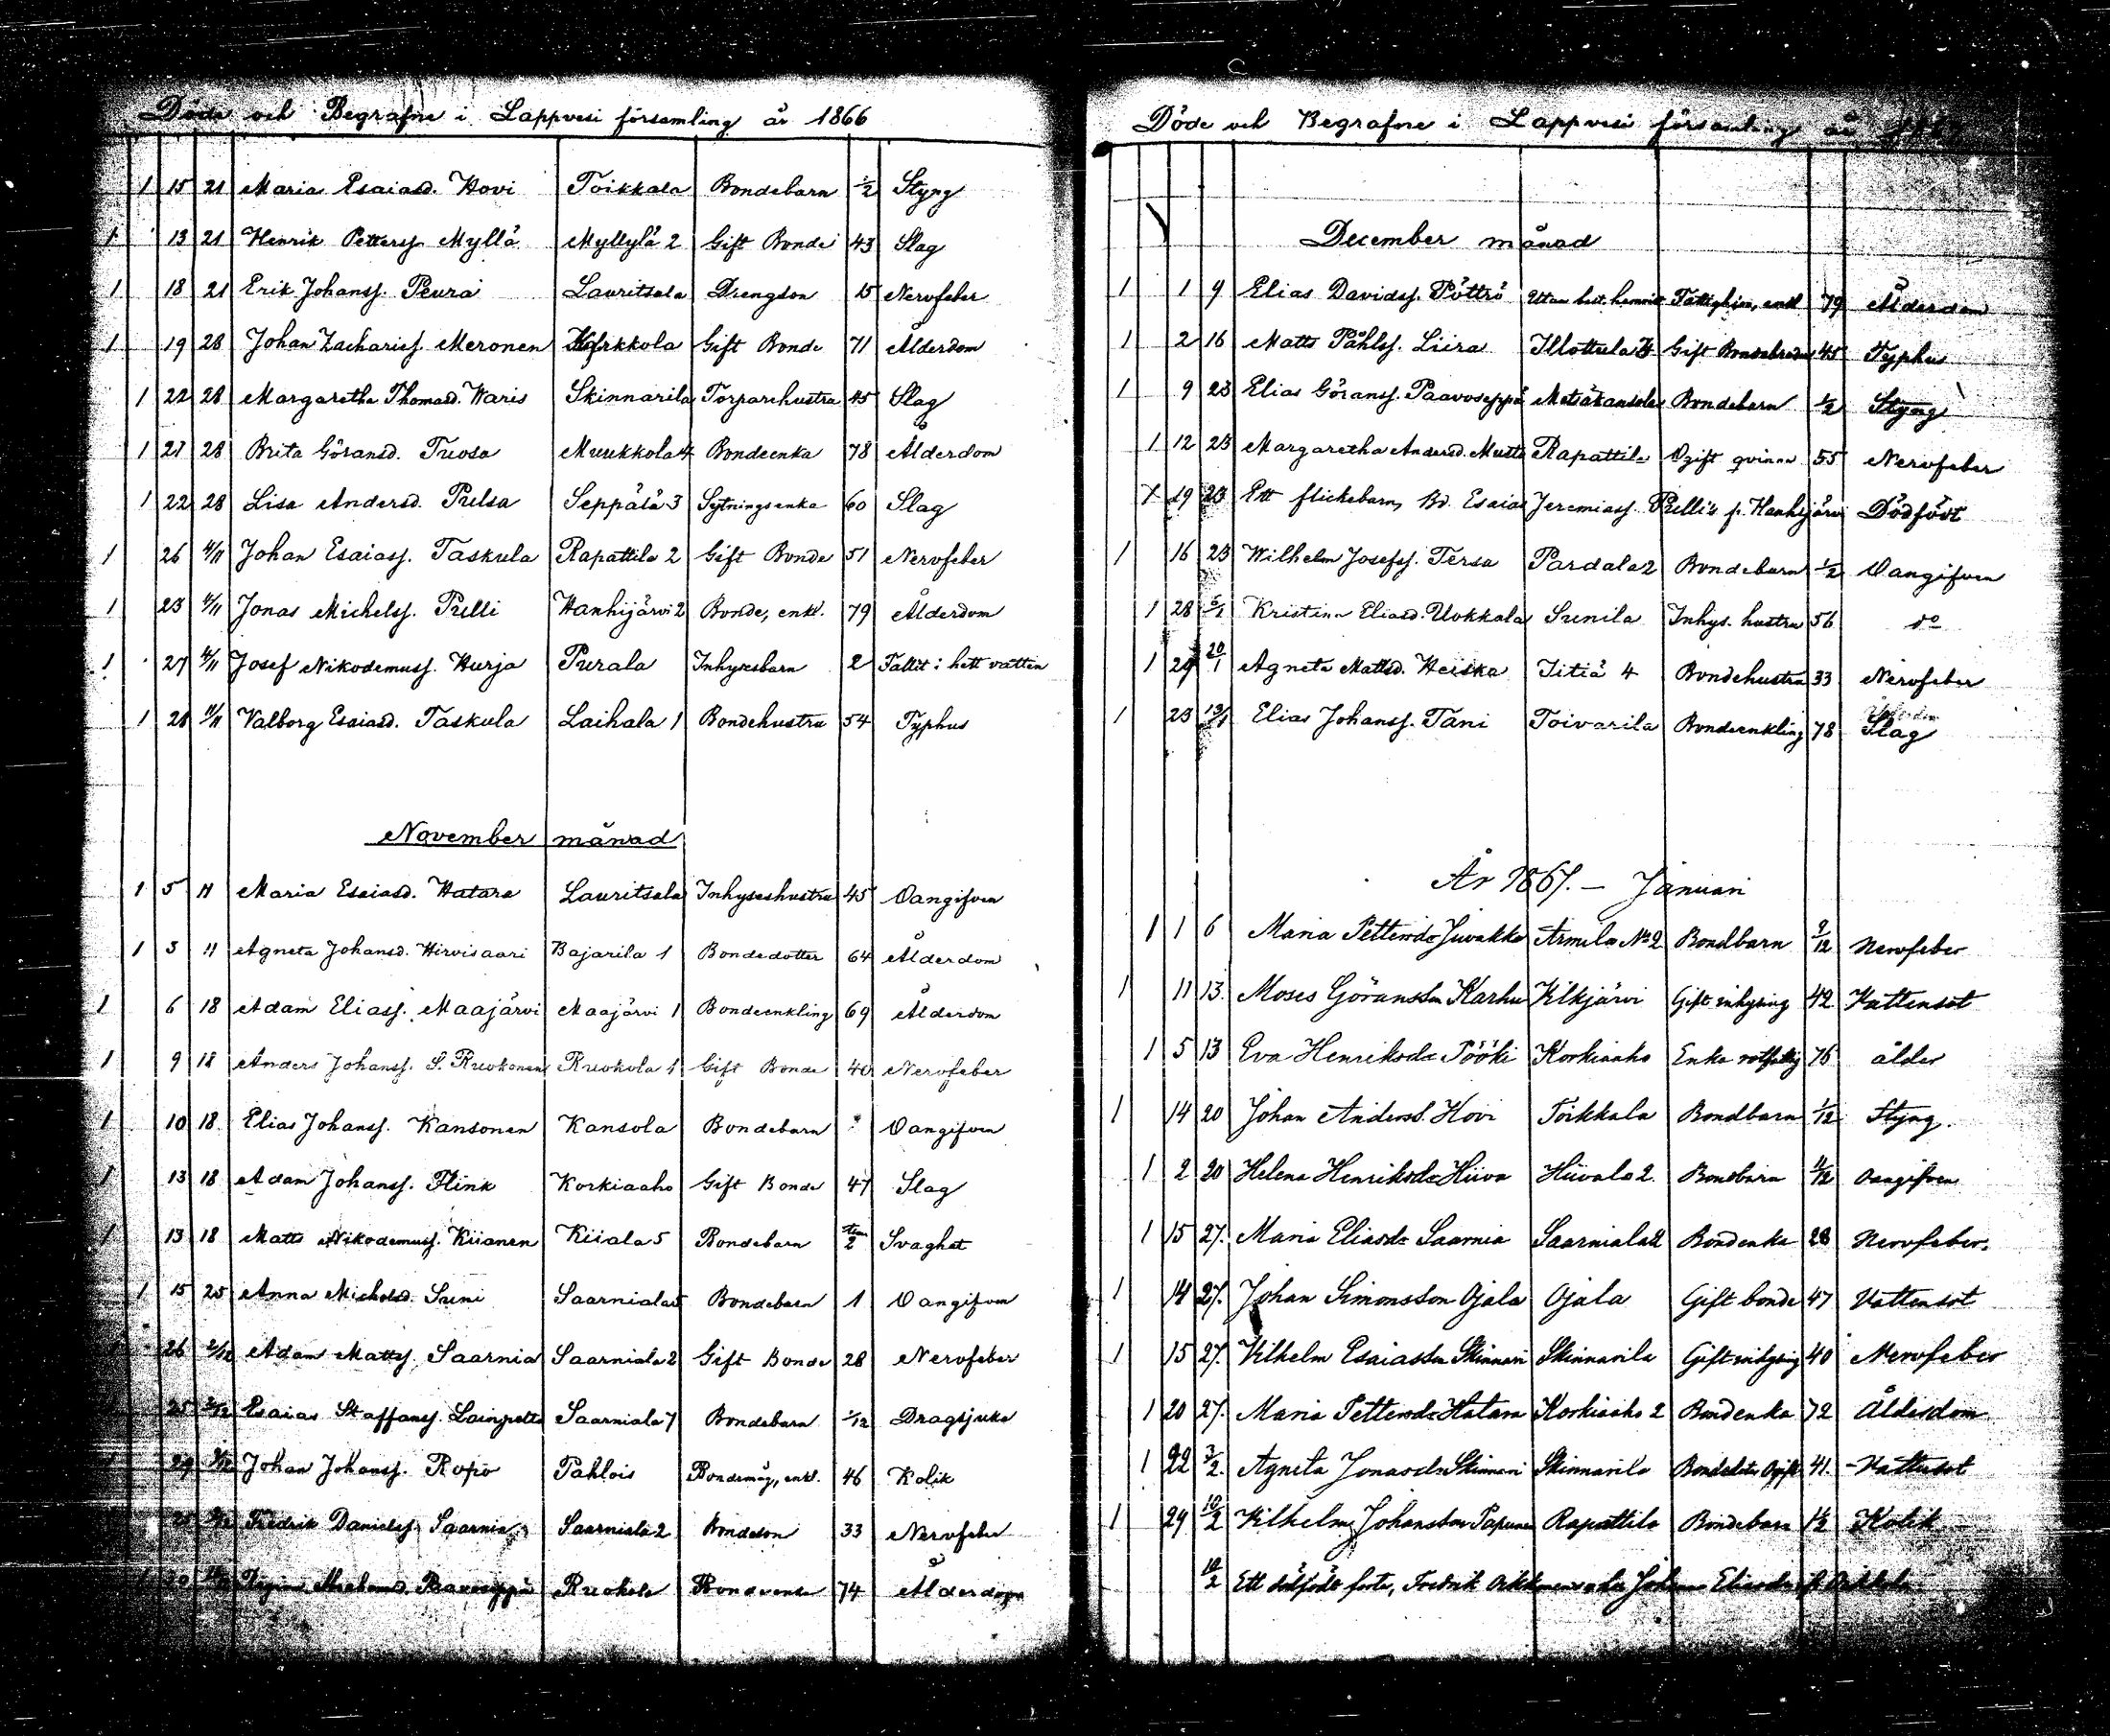 Döde och Begrafne i Lappvesi församling år 1866
1 15 21 Maria Esaiasd. Hovi Toikkala Bondebarn 1/2 Styng
1 13 21 Henrik Petterss. Myllä Myllylä 2 Gift Bonde 43 Slag
1 18 21 Erik Johanss. Peura Lauritsala Drengson 15 Nervfeber
1 19 28 Johan Zachariess. Meronen Gift Bonde 71 Ålderdom
1 22 28 Margaretha Thomasd. Waris Skinnarila Torparehustru 45 Slag
1 21 28 Brita Göransd. Tuosa Muukkola 4 Bondeenka 78 Ålderdom
1 22 28 Lisa Andersd. Pulsa Seppälä 3 Sytningsenka 60 Slag
1 26 4/11 Johan Esaiass. Taskula Rapattila 2 Gift Bonde 51 Nervfeber
1 23 4/11 Jonas Michelss. Pulli Hanhijärvi 2 Bonde, enkl. 79 Ålderdom
1 27 4/11 Josef Nikodemuss. Hurja Purala Inhyresbarn 2 Fallit i hett vatten
1 28 11/11 Valborg Esaiasd. Taskula Laihala 1 Bondehustru 54 Typhus
November månad
1 5 11 Maria Esaiasd. Hatara Lauritsala Inhyseshustru 45 Oangifven
1 3 11 Agneta Johansd. Hirvisaari Bajarila 1 Bondedotter 64 Ålderdom
1 6 18 Adam Eliass. Maajärvi Maajärvi 1 Bondeenkling 69 Ålderdom
1 9 18 Anders Johanss. S. Ruokonen Ruohola 1 Gift Bonde 40 Nervfeber
1 10 18 Elias Johanss. Kansonen Kansola Bondebarn Oangifven
1 13 18 Adam Johanss. Flink Korkiaaho Gift Bonde 47 Slag
1 13 18 Matts Nikodemuss. Kiianen Kiiala 5 Bondebarn 2 Svaghet
1 15 25 Anna Michelsd. Suni Saarniala 5 Bondebarn 1 Oangifven
26 2/12 Adam Mattss. Saarnia Saarniala 2 Gift Bonde 28 Nervfeber
25 2/12 Esaias Staffanss. Lainpelto Saarniala 7 Bondebarn 1/12 Dragsjuka
29 Johan Johanss. Ropo Pahlois Bondemåg, enkl. 46 Kolik
Fredrik Danielss. Saarnia Saarniala 2 Bondeson 33 Nervfeber
Ruohola Bondeenka 74 Ålderdom
Döde och Begrafne i Lappvesi församling år
December månad
1 1 9 Elias Davidss. Pöttrö Utan best. hemvist Fattighjon, enkl 79 Ålderdom
1 2 16 Matts Påhlss. Liira Illottula Gift Bondebroder 45 Typhus
1 9 23 Elias Göranss. Paavoseppä Metsäkansola Bondebarn 1/2 Styng
1 12 23 Margaretha Andersd. Mutta Rapattila Ogift qvinna 55 Nervfeber
19 23 Ett flickebarn, Bd. Esaias Jeremiass. Pulli's fr. Hanhijärvi Dödfödt
1 16 23 Wilhelm Josefss. Tersa Pardala 2 Bondebarn 1/2 Oangifven
1 28 6/1 Kristina Eliasd. Uokkala Sunila Inhys. hustru 56 do
1 29 20/1 Agneta Mattsd. Heiska Iitiä 4 Bondehustru 33 Nervfeber
1 23 13/1 Elias Johanss. Tani Toivarila Bondeenkling 78 Slag
År 1867. — Januari
1 1 6 Maria Pettersdr Juvakka Armila No 2 Bondbarn 9/12 Nervfeber
1 11 13. Moses Göransson Karhu Kilkjärvi Gift inhysing 42 Vattensot
1 5 13 Eva Henriksdr Pööki Korkiaaho Enka rotfattig 76 ålder
1 14 20 Johan Anderss. Hovi Toikkala Bondbarn 1/12 Styng.
1 2 20 Helena Henriksdr Hiiva Hiivala 2. Bondbarn 4/12 Oangifven
1 15 27. Maria Eliasdr Saarnia Saarniala 2 Bondenka 28 Nervfeber.
1 14 27. Johan Simonsson Ojala Ojala Gift bonde 47 Vattensot
1 15 27. Vilhelm Esaiasson Skinnari Skinnarila Gift inhysing 40 Nervfeber
1 20 27. Maria Pettersdr Hatara Korkiaaho 2 Bondenka 72 Ålderdom
1 22 3/2. Agneta Jonasdr Skinnari Skinnarila Bondedotter Ogift 41. Vattensot
1 29 10/2 Vilhelm Johansson Papunen Rapattila Bondebarn 1/2 Kolik
10/2 Ett dödfödt foster, Fredrik